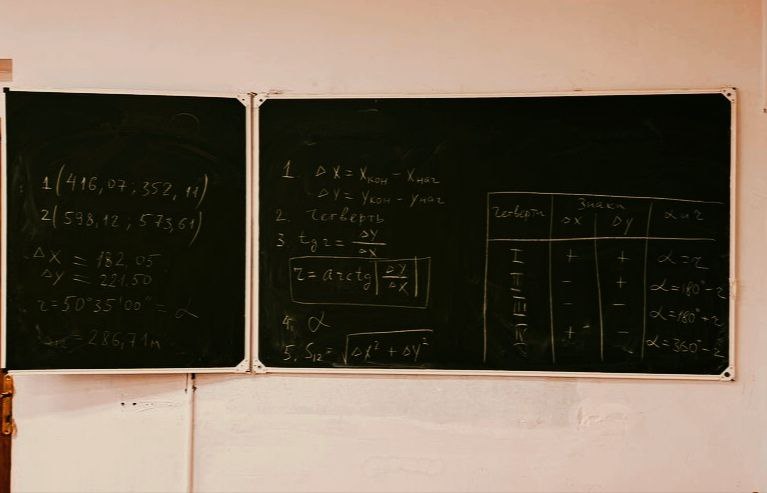 1(416,07; 352,11)
2(598,12; 573,61)
ΔX = 182,05
ΔY = 221,50
r=50°35'00" = α
= 286,71м
1. ΔX = Xкон - Xнаг
ΔY = Yкон - Yнаг
2. Четверть
3. tg r = ΔY/ΔX
r = arctg |ΔY/ΔX|
4. α
5. S₁₂ = √ΔX² + ΔY²
Четверти Знаки α и r
ΔX ΔY
I + + α = r
II - + α = 180° - r
III - - α = 180° + r
+ - α = 360° - r